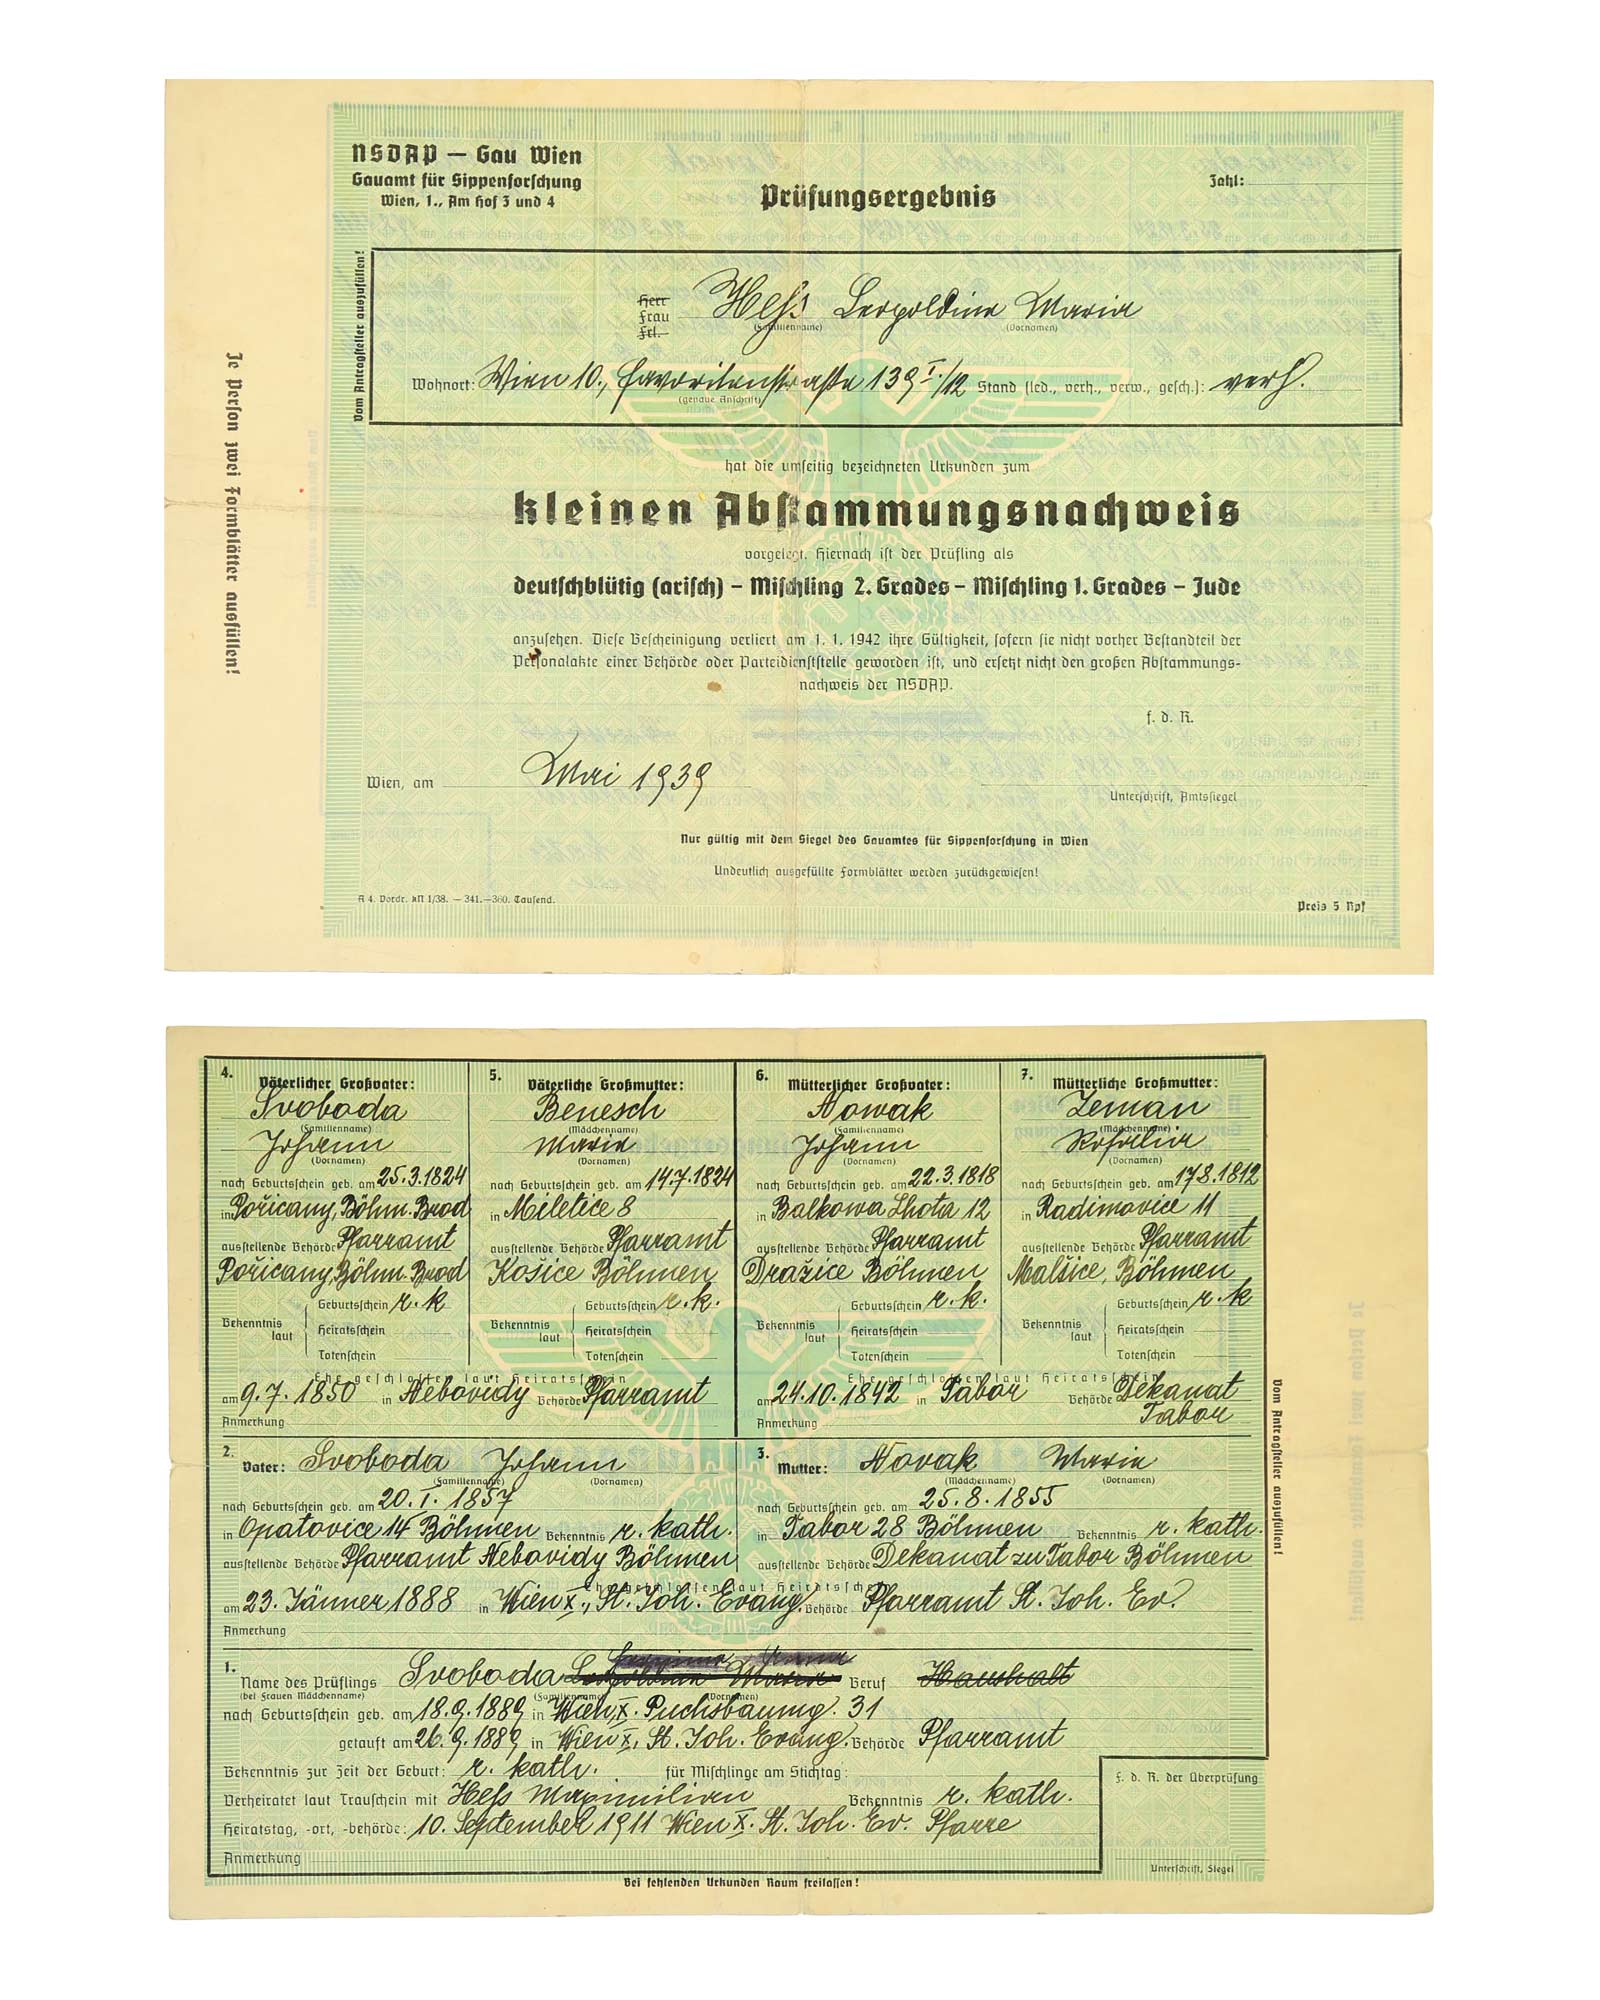 NSDAP — Gau Wien
Gauamt für Sippenforschung
Wien, 1., Am Hof 3 und 4
Prüfungsergebnis
Zahl:
Vom Antragsteller auszufüllen!
Je Person zwei Formblätter ausfüllen!
Herr
Frau Hess Leopoldine Maria
Frl.
(Familienname) (Vornamen)
Wohnort: Wien 10., Favoritenstraße 139 I./12 Stand (led., verh., verw., gesch.): verh.
(genaue Anschrift)
hat die umseitig bezeichneten Urkunden zum
kleinen Abstammungsnachweis
vorgelegt. Hiernach ist der Prüfling als
deutschblütig (arisch) – Mischling 2. Grades – Mischling 1. Grades – Jude
anzusehen. Diese Bescheinigung verliert am 1. 1. 1942 ihre Gültigkeit, sofern sie nicht vorher Bestandteil der
Personalakte einer Behörde oder Parteidienststelle geworden ist, und ersetzt nicht den großen Abstammungs-
nachweis der NSDAP.
f. d. R.
Wien, am Mai 1939
Unterschrift, Amtssiegel
Nur gültig mit dem Siegel des Gauamtes für Sippenforschung in Wien
Undeutlich ausgefüllte Formblätter werden zurückgewiesen!
A 4. Vordr. kN 1/38. — 341.—360. Tausend.
Preis 5 Rpf
4. Väterlicher Großvater:
Svoboda
(Familienname)
Johann
(Vornamen)
nach Geburtsschein geb. am 25.3.1824
in Pořicany, Böhm. Brod
ausstellende Behörde Pfarramt
Pořicany, Böhm. Brod
Bekenntnis laut
Geburtsschein r. k
Heiratsschein
Totenschein
5. Väterliche Großmutter:
Benesch
(Mädchenname)
Maria
(Vornamen)
nach Geburtsschein geb. am 14.7.1824
in Miletice 8
ausstellende Behörde Pfarramt
Košice Böhmen
Bekenntnis laut
Geburtsschein r. k.
Heiratsschein
Totenschein
Ehe geschlossen laut Heiratsschein
am 9.7.1850 in Nebovidy Behörde Pfarramt
Anmerkung
6. Mütterlicher Großvater:
Nowak
(Familienname)
Johann
(Vornamen)
nach Geburtsschein geb. am 22.3.1818
in Balkowa Lhota 12
ausstellende Behörde Pfarramt
Dražice Böhmen
Bekenntnis laut
Geburtsschein r. k.
Heiratsschein
Totenschein
7. Mütterliche Großmutter:
Zeman
(Mädchenname)
Rosalia
(Vornamen)
nach Geburtsschein geb. am 17.8.1812
in Radimovice 11
ausstellende Behörde Pfarramt
Malšice, Böhmen
Bekenntnis laut
Geburtsschein r. k
Heiratsschein
Totenschein
Ehe geschlossen laut Heiratsschein
am 24.10.1842 in Tabor Behörde Dekanat
Tabor
Anmerkung
2. Vater: Svoboda Johann
(Familienname) (Vornamen)
nach Geburtsschein geb. am 20. I. 1857
in Opatovice 14 Böhmen Bekenntnis r. kath.
ausstellende Behörde Pfarramt Nebovidy Böhmen
3. Mutter: Novak Maria
(Mädchenname) (Vornamen)
nach Geburtsschein geb. am 25.8.1855
in Tabor 28 Böhmen Bekenntnis r. kath.
ausstellende Behörde Dekanat zu Tabor Böhmen
Ehe geschlossen laut Heiratsschein
am 23. Jänner 1888 in Wien X., St. Joh. Evang. Behörde Pfarramt St. Joh. Ev.
Anmerkung
1. Name des Prüflings Svoboda Leopoldine Maria Beruf Haushalt
(bei Frauen Mädchenname) (Familienname) (Vornamen)
nach Geburtsschein geb. am 18.9.1889 in Wien X. Puchsbaumg. 31
getauft am 26.9.1889 in Wien X., St. Joh. Evang. Behörde Pfarramt
Bekenntnis zur Zeit der Geburt: r. kath. für Mischlinge am Stichtag:
Verheiratet laut Trauschein mit Hess Maximilian Bekenntnis r. kath.
Heiratstag, -ort, -behörde: 10. September 1911 Wien X. St. Joh. Ev. Pfarre
Anmerkung
f. d. R. der Überprüfung
Unterschrift, Siegel
Vom Antragsteller auszufüllen!
Bei fehlenden Urkunden Raum freilassen!